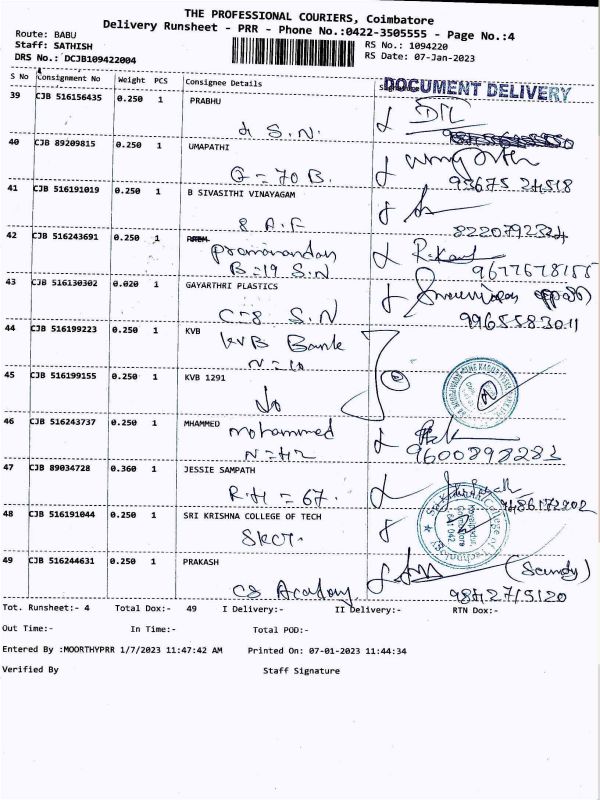 THE PROFESSIONAL COURIERS, Coimbatore
Delivery Runsheet - PRR - Phone No.:0422-3505555 - Page No.:4
Route: BABU
Staff: SATHISH
DRS No.: DCJB109422004
RS No.: 1094220
RS Date: 07-Jan-2023
S No Consignment No Weight PCS Consignee Details
DOCUMENT DELIVERY
39 CJB 516156435 0.250 1 PRABHU
S.N.
40 CJB 89209815 0.250 1 UMAPATHI
G = 70 B.
98675 24518
41 CJB 516191019 0.250 1 B SIVASITHI VINAYAGAM
8 A.F
42 CJB 516243691 0.250 1
B = 19 S.N
43 CJB 516130302 0.020 1 GAYARTHRI PLASTICS
C = 8 S.N
9965583011
44 CJB 516199223 0.250 1 KVB
KVB Bank
45 CJB 516199155 0.250 1 KVB 1291
46 CJB 516243737 0.250 1 MHAMMED
mohammed
9600898282
47 CJB 89034728 0.360 1 JESSIE SAMPATH
R.H = 67.
9486172202
48 CJB 516191044 0.250 1 SRI KRISHNA COLLEGE OF TECH
SKCT.
49 CJB 516244631 0.250 1 PRAKASH
CS Academy
9842715120
Tot. Runsheet:- 4 Total Dox:- 49 I Delivery:- II Delivery:- RTN Dox:-
Out Time:- In Time:- Total POD:-
Entered By :MOORTHYPRR 1/7/2023 11:47:42 AM Printed On: 07-01-2023 11:44:34
Verified By Staff Signature